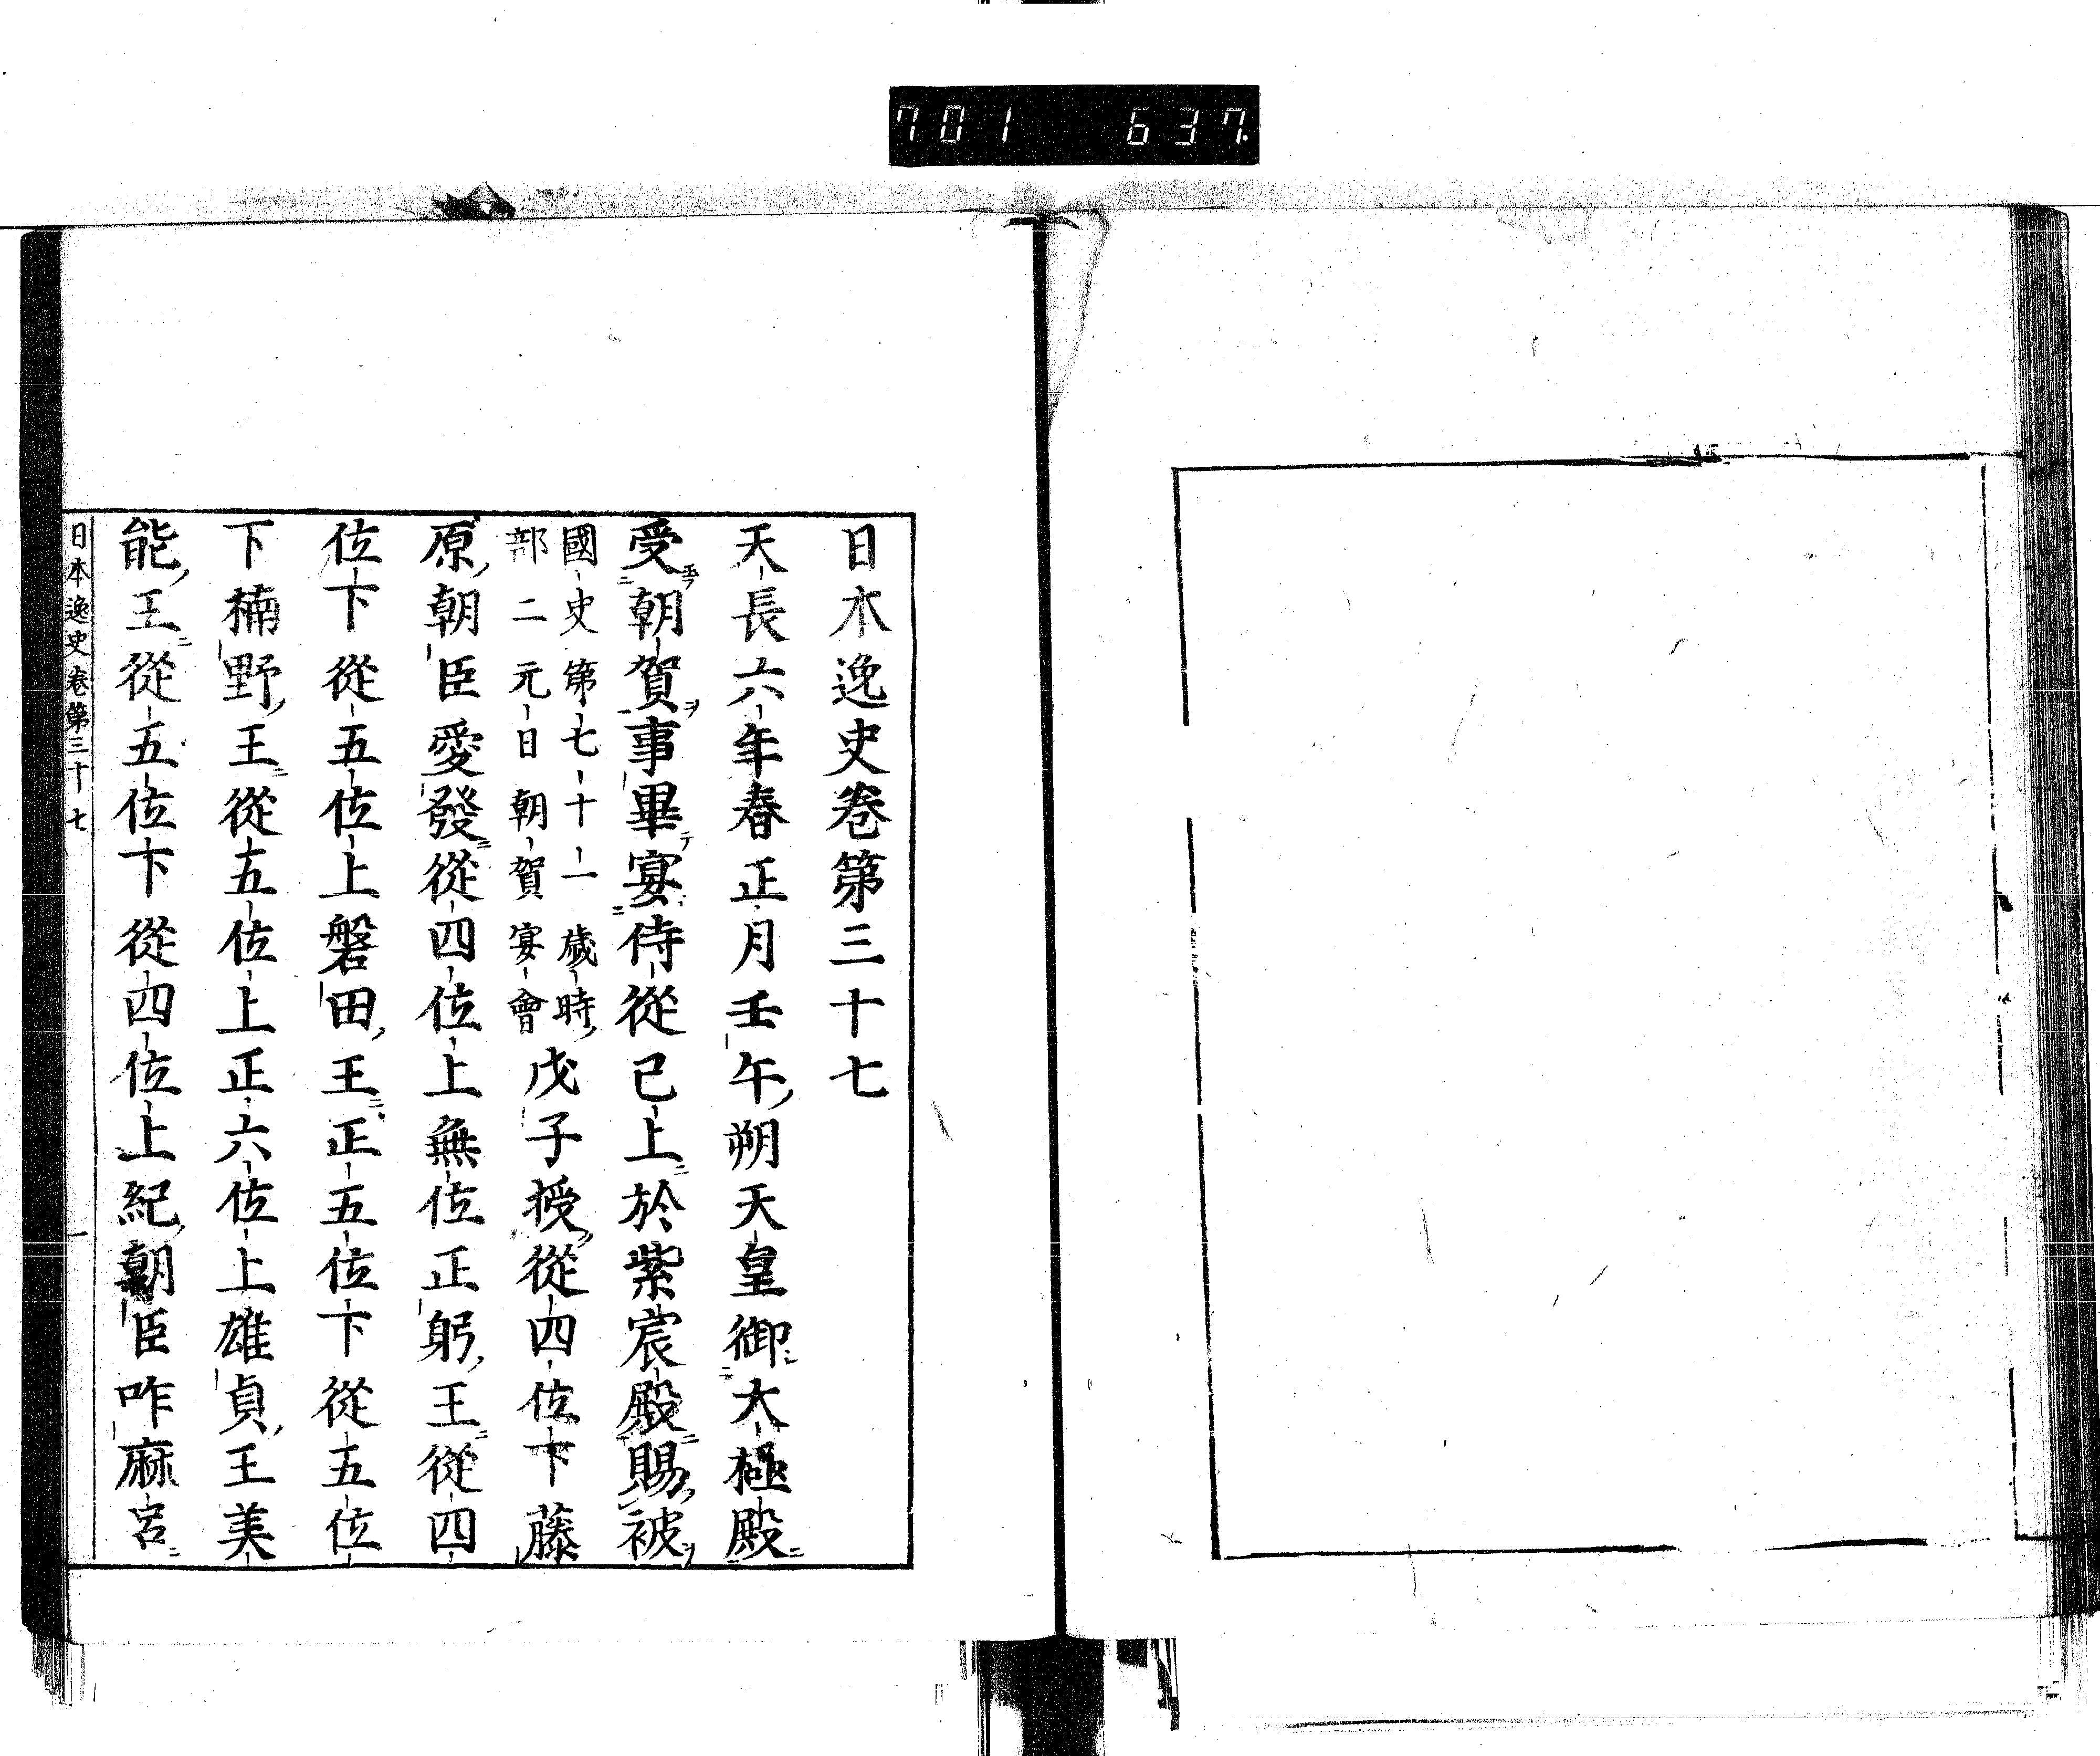 701 637
日本逸史卷第三十七
天長六年春正月壬午朔天皇御大極殿
受朝賀事畢宴侍從已上於紫宸殿賜被
國史第七十一歲時
部二元日朝賀宴會
戊子授從四位下藤
原朝臣愛發從四位上無位正躬王從四
位下從五位上磐田王正五位下從五位
下楠野王從五位上正六位上雄貞王美
能王從五位下從四位上紀朝臣咋麻呂
日本逸史卷第三十七 一